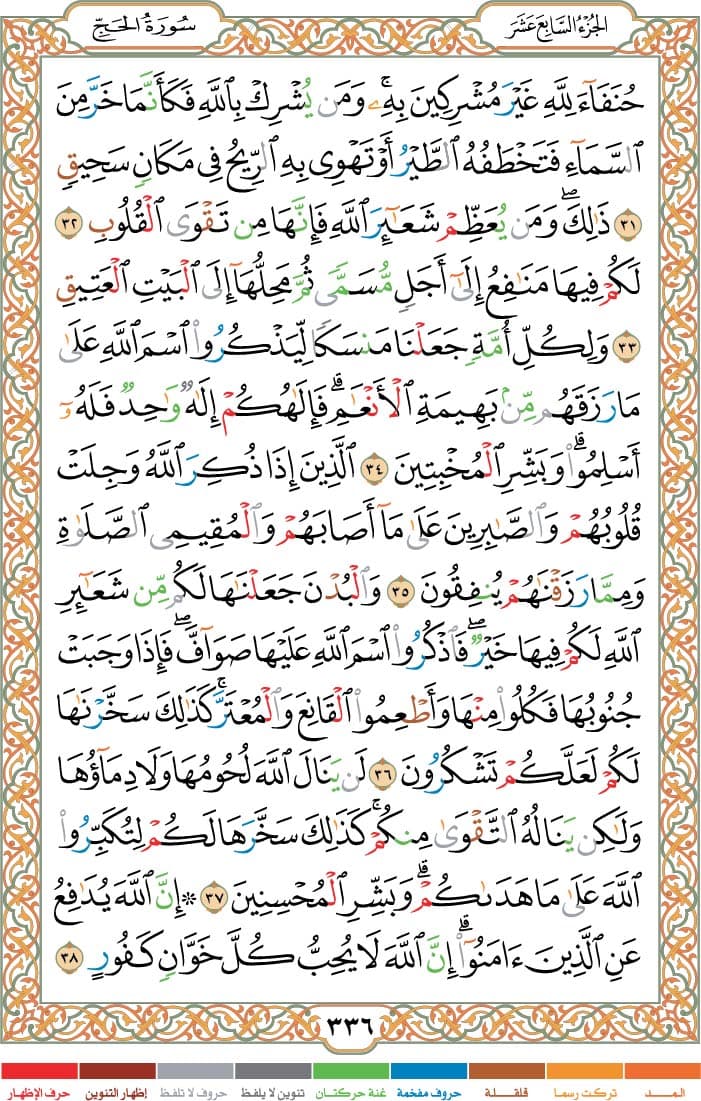 الجزء السابع عشر
سورة الحج
حُنَفَآءَ لِلَّهِ غَيْرَ مُشْرِكِينَ بِهِۦۚ وَمَن يُشْرِكْ بِٱللَّهِ فَكَأَنَّمَا خَرَّ مِنَ
ٱلسَّمَآءِ فَتَخْطَفُهُ ٱلطَّيْرُ أَوْ تَهْوِى بِهِ ٱلرِّيحُ فِى مَكَانٍ سَحِيقٍ
٣١ ذَٰلِكَۖ وَمَن يُعَظِّمْ شَعَـٰٓئِرَ ٱللَّهِ فَإِنَّهَا مِن تَقْوَى ٱلْقُلُوبِ ٣٢
لَكُمْ فِيهَا مَنَـٰفِعُ إِلَىٰٓ أَجَلٍ مُّسَمًّى ثُمَّ مَحِلُّهَآ إِلَى ٱلْبَيْتِ ٱلْعَتِيقِ
٣٣ وَلِكُلِّ أُمَّةٍ جَعَلْنَا مَنسَكًا لِّيَذْكُرُوا۟ ٱسْمَ ٱللَّهِ عَلَىٰ
مَا رَزَقَهُم مِّنۢ بَهِيمَةِ ٱلْأَنْعَـٰمِۗ فَإِلَـٰهُكُمْ إِلَـٰهٌ وَٰحِدٌ فَلَهُۥٓ
أَسْلِمُوا۟ۗ وَبَشِّرِ ٱلْمُخْبِتِينَ ٣٤ ٱلَّذِينَ إِذَا ذُكِرَ ٱللَّهُ وَجِلَتْ
قُلُوبُهُمْ وَٱلصَّـٰبِرِينَ عَلَىٰ مَآ أَصَابَهُمْ وَٱلْمُقِيمِى ٱلصَّلَوٰةِ
وَمِمَّا رَزَقْنَـٰهُمْ يُنفِقُونَ ٣٥ وَٱلْبُدْنَ جَعَلْنَـٰهَا لَكُم مِّن شَعَـٰٓئِرِ
ٱللَّهِ لَكُمْ فِيهَا خَيْرٌۖ فَٱذْكُرُوا۟ ٱسْمَ ٱللَّهِ عَلَيْهَا صَوَآفَّۖ فَإِذَا وَجَبَتْ
جُنُوبُهَا فَكُلُوا۟ مِنْهَا وَأَطْعِمُوا۟ ٱلْقَانِعَ وَٱلْمُعْتَرَّۚ كَذَٰلِكَ سَخَّرْنَـٰهَا
لَكُمْ لَعَلَّكُمْ تَشْكُرُونَ ٣٦ لَن يَنَالَ ٱللَّهَ لُحُومُهَا وَلَا دِمَآؤُهَا
وَلَـٰكِن يَنَالُهُ ٱلتَّقْوَىٰ مِنكُمْۚ كَذَٰلِكَ سَخَّرَهَا لَكُمْ لِتُكَبِّرُوا۟
ٱللَّهَ عَلَىٰ مَا هَدَىٰكُمْۗ وَبَشِّرِ ٱلْمُحْسِنِينَ ٣٧ ۞ إِنَّ ٱللَّهَ يُدَٰفِعُ
عَنِ ٱلَّذِينَ ءَامَنُوٓا۟ۗ إِنَّ ٱللَّهَ لَا يُحِبُّ كُلَّ خَوَّانٍ كَفُورٍ ٣٨
٣٣٦
المـــد تركت رسما قلقـــلة حروف مفخمة غنة حركتان تنوين لا يلفظ حروف لا تلفظ إظهار التنوين حرف الإظهار